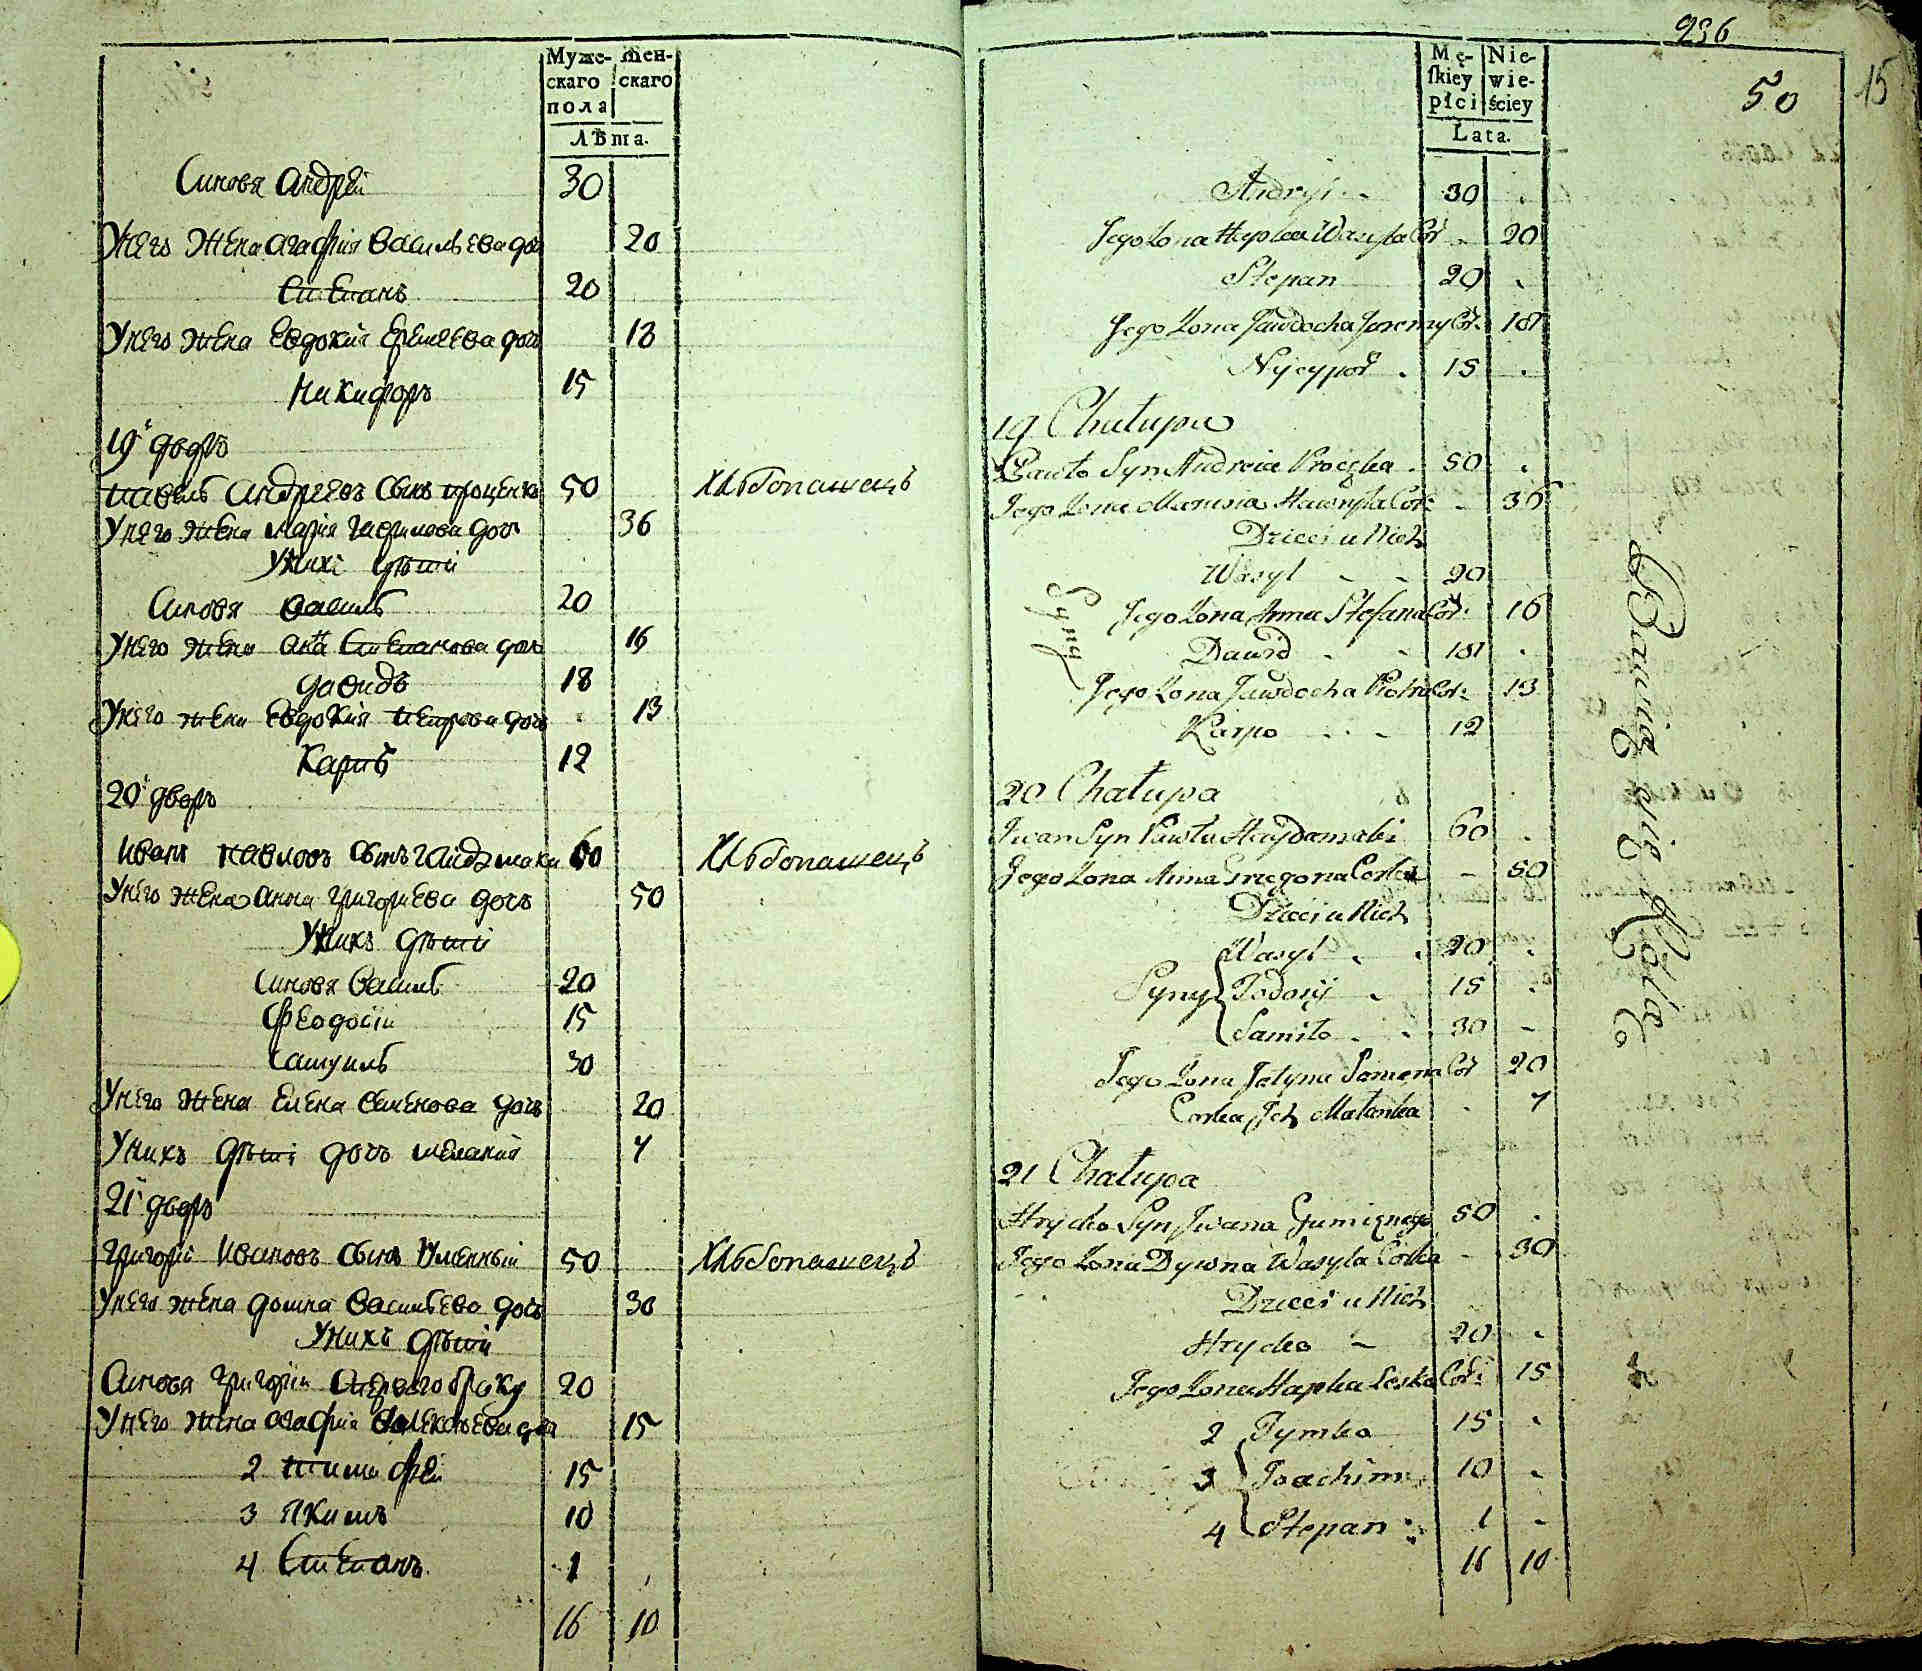 Муже-
скаго
пола
Жен-
скаго
Лѣта.
Синовя Андрей 30
У него жена агафия Василъева доч 20
Степанъ 20
У него жена Евдокия Еремеева доч 18
Никифоръ 15
19й дворъ
Павелъ Андреевъ сынъ Проценко 50 Хлѣбопашецъ
У него жена Мария Гаврилова доч 36
У них дѣти
Синовя Василь 20
У него жена Анна Степанова доч 16
Давидъ 18
У него жена Евдокия Петрова доч 13
Карпъ 12
20й дворъ
Иванъ Павловъ сынъ Гайдамака 60 Хлѣбопашецъ
У него жена Анна Григориева доч 50
У них дѣти
Синовя Василь 20
Феодосии 15
Самуилъ 30
У него жена Елена Семенова доч 20
У нихъ дѣти доч Мелания 7
21й дворъ
Григори Ивановъ сынъ Уменный 50 Хлѣбопашецъ
У него жена Домна Василъева доч 30
У нихъ дѣти
Синовя Григори Спервого браку 20
У него жена агафия доч 15
2 Тимофей 15
3 Якимъ 10
4 Степанъ 1
16 10
236
50
15
Mę-
skiey
płci
Nie-
wie-
ściey
Lata.
Andryi 30
Jego Żona Hapka Wasyla Cór 20
Stepan 20
Jego Żona Jawdocha Jaremy Cór 18
Nyczypor 15
19 Chałupa
Pawło Syn Andreia Procęka 50
Jego Żona Marusia Hawryła Cór: 36
Dzieci u Nich
Wasyl 20
Jego Żona Anna Stefana Cór: 16
Syny
Dawid 18
Jego Żona Jawdocha Piotra Cór: 13
Karpo 12
20 Chałupa
Iwan Syn Pawła Haydamaki 60
Jego Żona Anna Grzegorza Corka 50
Dzieci u Nich
Wasyl 20
Syny Todosij 15
Samiło 30
Jego Żona Jalyna Semena Cór 20
Corka Ich Małanka 7
21 Chałupa
Hrycko Syn Iwana Gumięnego 50
Jego Żona Dywna Wasyla Córka 30
Dzieci u Nich
Hrycko 20
Jego Żona Hapka Leska Cór: 15
2 Tymko 15
3 Joachim 10
4 Stepan 1
16 10